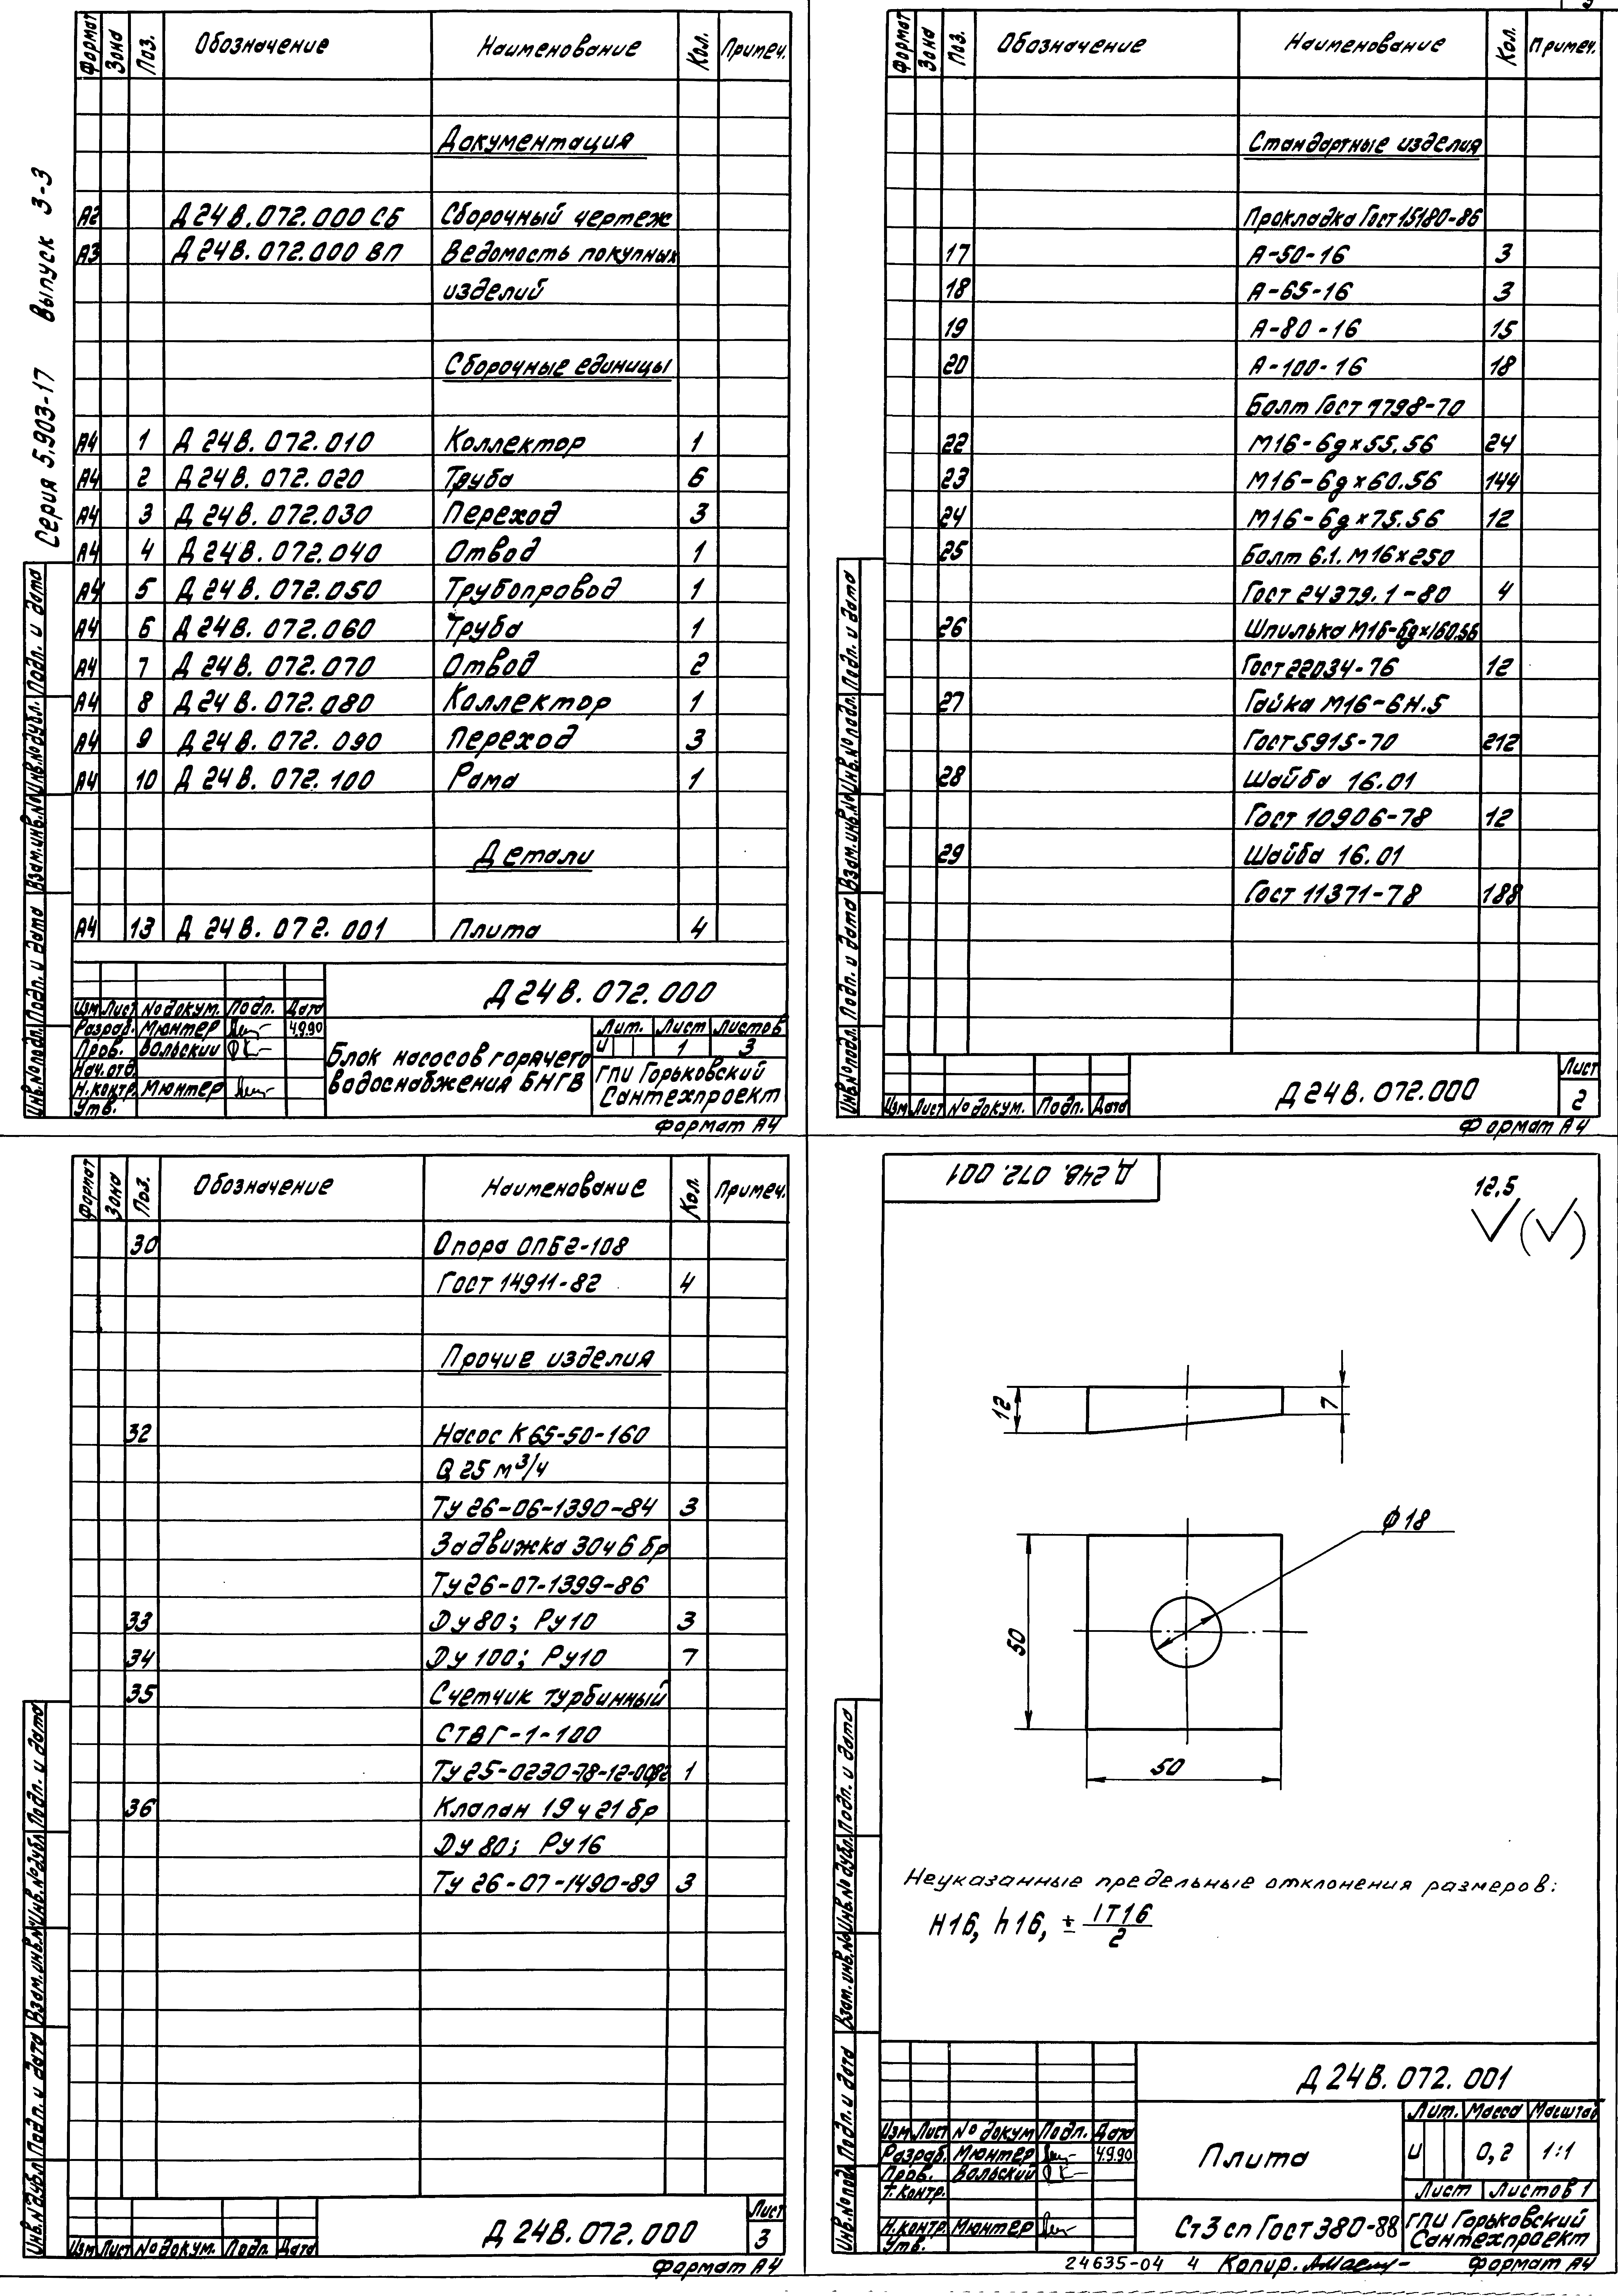 Серия 5.903-17 Выпуск 3-3
Формат Зона Поз. Обозначение Наименование Кол. Примеч.
Документация
А2 Д 24 В. 072.000 СБ Сборочный чертеж
А3 Д 24 В. 072.000 ВП Ведомость покупных
изделий
Сборочные единицы
А4 1 Д 24 В. 072.010 Коллектор 1
А4 2 Д 24 В. 072.020 Труба 6
А4 3 Д 24 В. 072.030 Переход 3
А4 4 Д 24 В. 072.040 Отвод 1
А4 5 Д 24 В. 072.050 Трубопровод 1
А4 6 Д 24 В. 072.060 Труба 1
А4 7 Д 24 В. 072.070 Отвод 2
А4 8 Д 24 В. 072.080 Коллектор 1
А4 9 Д 24 В. 072.090 Переход 3
А4 10 Д 24 В. 072.100 Рама 1
Детали
А4 13 Д 24 В. 072.001 Плита 4
Инв.№подл. Подп. и дата Взам.инв.№ Инв.№дубл. Подп. и дата
Д 24 В. 072.000
Изм Лист № докум. Подп. Дата
Разраб. Мюнтер 4.9.90
Пров. Вольский
Нач.отд.
Н.контр. Мюнтер
Утв.
Блок насосов горячего
водоснабжения БНГВ
Лит. Лист Листов
И 1 3
ГПИ Горьковский
Сантехпроект
Формат А4
3
Формат Зона Поз. Обозначение Наименование Кол. Примеч.
Стандартные изделия
Прокладка Гост 15180-86
17 А-50-16 3
18 А-65-16 3
19 А-80-16 15
20 А-100-16 18
Болт Гост 7798-70
22 М16-6g×55.56 24
23 М16-6g×60.56 144
24 М16-6g×75.56 12
25 Болт 6.1. М16×250
Гост 24379.1-80 4
26 Шпилька М16-6g×160.56
Гост 22034-76 12
27 Гайка М16-6Н.5
Гост 5915-70 212
28 Шайба 16.01
Гост 10906-78 12
29 Шайба 16.01
Гост 11371-78 188
Инв.№подл. Подп. и дата Взам.инв.№ Инв.№подл. Подп. и дата
Изм Лист № докум. Подп. Дата
Д 24 В. 072.000
Лист
2
Формат А4
Формат Зона Поз. Обозначение Наименование Кол. Примеч.
30 Опора ОПБ2-108
Гост 14911-82 4
Прочие изделия
32 Насос К 65-50-160
Q 25 м³/ч
Ту 26-06-1390-84 3
Задвижка 30ч 6 бр
Ту 26-07-1399-86
33 Ду 80; Ру 10 3
34 Ду 100; Ру 10 7
35 Счетчик турбинный
СТВГ-1-100
Ту 25-0230-78-12-0082 1
36 Клапан 19 ч 21 бр
Ду 80; Ру 16
Ту 26-07-1490-89 3
Инв.№дубл. Подп. и дата Взам.инв.№ Инв.№дубл. Подп. и дата
Изм Лист № докум. Подп. Дата
Д 24 В. 072.000
Лист
3
Формат А4
Д 24В. 072. 001
12,5
12
7
ф 18
50
50
Неуказанные предельные отклонения размеров:
Н16, h16, ± IT16/2
Инв.№подл. Подп. и дата Взам.инв.№ Инв.№дубл. Подп. и дата
Д 24 В. 072. 001
Изм Лист № докум Подп. Дата
Разраб. Мюнтер 4.9.90
Пров. Вольский
Т.контр.
Н.контр. Мюнтер
Утв.
Плита
Лит. Масса Масштаб
И 0,2 1:1
Лист Листов 1
Ст 3 сп Гост 380-88
ГПИ Горьковский
Сантехпроект
24635-04 4 Копир. Формат А4